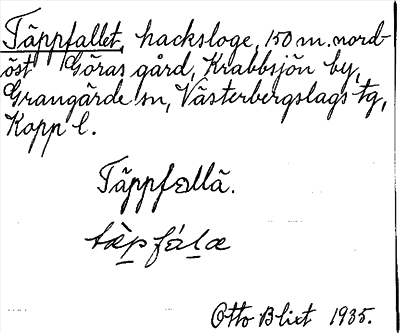 Täppfallet, hacksloge, 150 m. nord-
öst Göras gård, Krabbsjön by,
Grangärde sn, Västerbergslags tg,
Kopp l.
Täppfallä.
tæ̀p̱fáḻæ
Otto Blixt 1935.